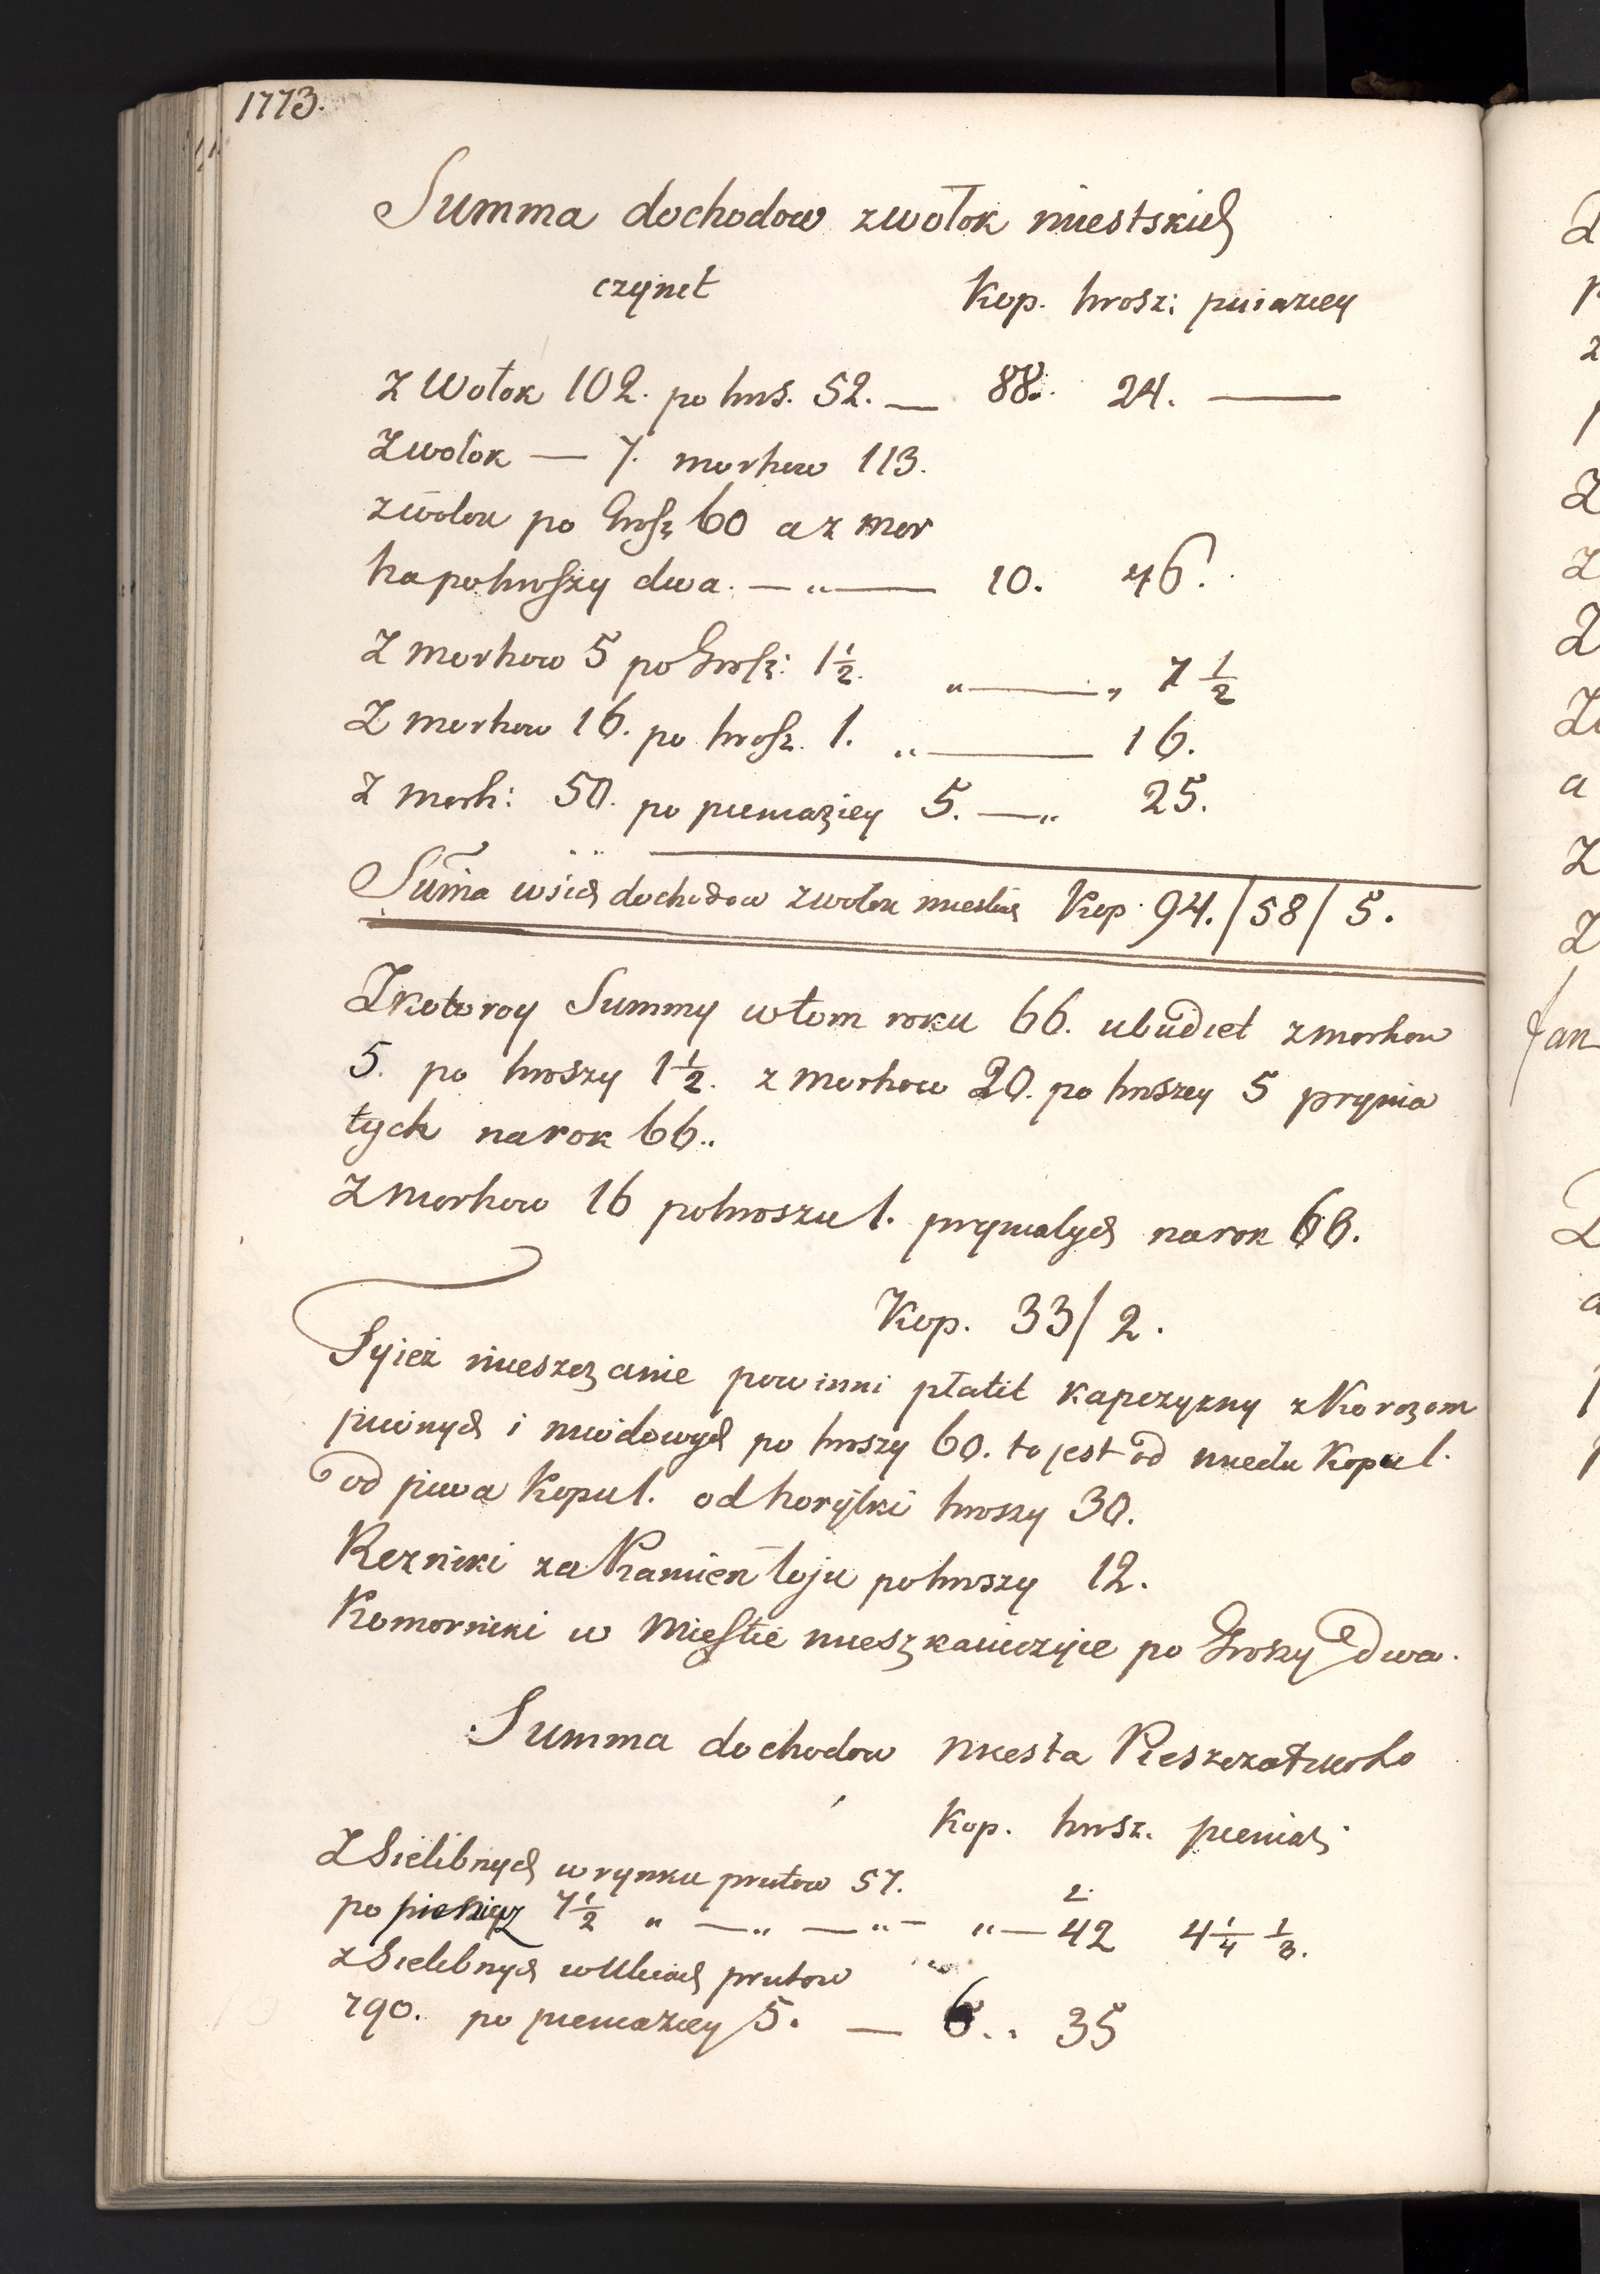 1773.
Summa dochodow zwołok miestskich
czynet
Kop. hrosz: piniazey
z Wołok 102. po hros. 52. — 88. 24. —
Zwołok — 7. morhow 113.
zwolok po Hrosz 60 a z mor
ha po hroszy dwa. — „ — 10. 46.
Z morhow 5 po Hrosz: 1½. „ — „ 7 ½
Z morhow 16. po hrosz. 1. „ — 16.
Z morh: 50. po pieniaziey 5. — „ 25.
Suma wsich dochodow zwolok miestkich Kop. 94. / 58 / 5.
Zkotoroy Summy wtom roku 66. ubudiet zmorhow
5. po hroszy 1½. z morhow 20. po hroszey 5 prynia
tych na rok 66..
Z morhow 16 po hroszu 1. prynialych na rok 66.
Kop. 33 / 2.
Tyież mieszczanie powinni płatit kapczyzny z Korczom
piwnych i miodowych po hroszy 60. to jest od miedu Kopu 1.
od piwa Kopu 1. od horyłki hroszy 30.
Rezniki za Kamień łoju po hroszy 12.
Komorniki w Miestie mieszkaiuczyie po Hroszy dwa.
Summa dochodow miesta Pieszczatkoho
Kop. hrosz. pieniaz:
Z Sielibnych w rynku prutow 57.
po pieniez 7½ „ — „ — „ — „ — 42 4¼ ⅓.
2.
z Sielibnych w Ulicach prutow
790. po pieniazey 5. — 6.. 35